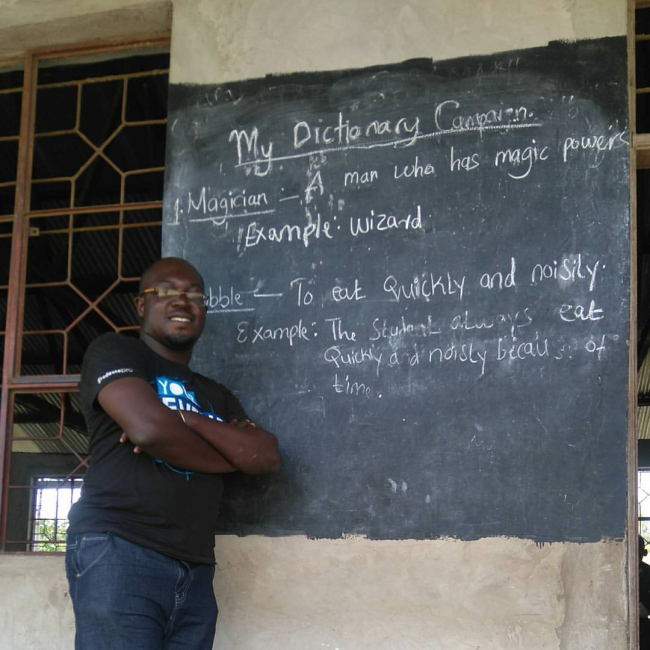 My Dictionary Campaign.
1. Magician – A man who has magic powers
Example: wizard
bble – To eat Quickly and noisily.
Example: The Student always eat
Quickly and noisly because of
time.
YOU